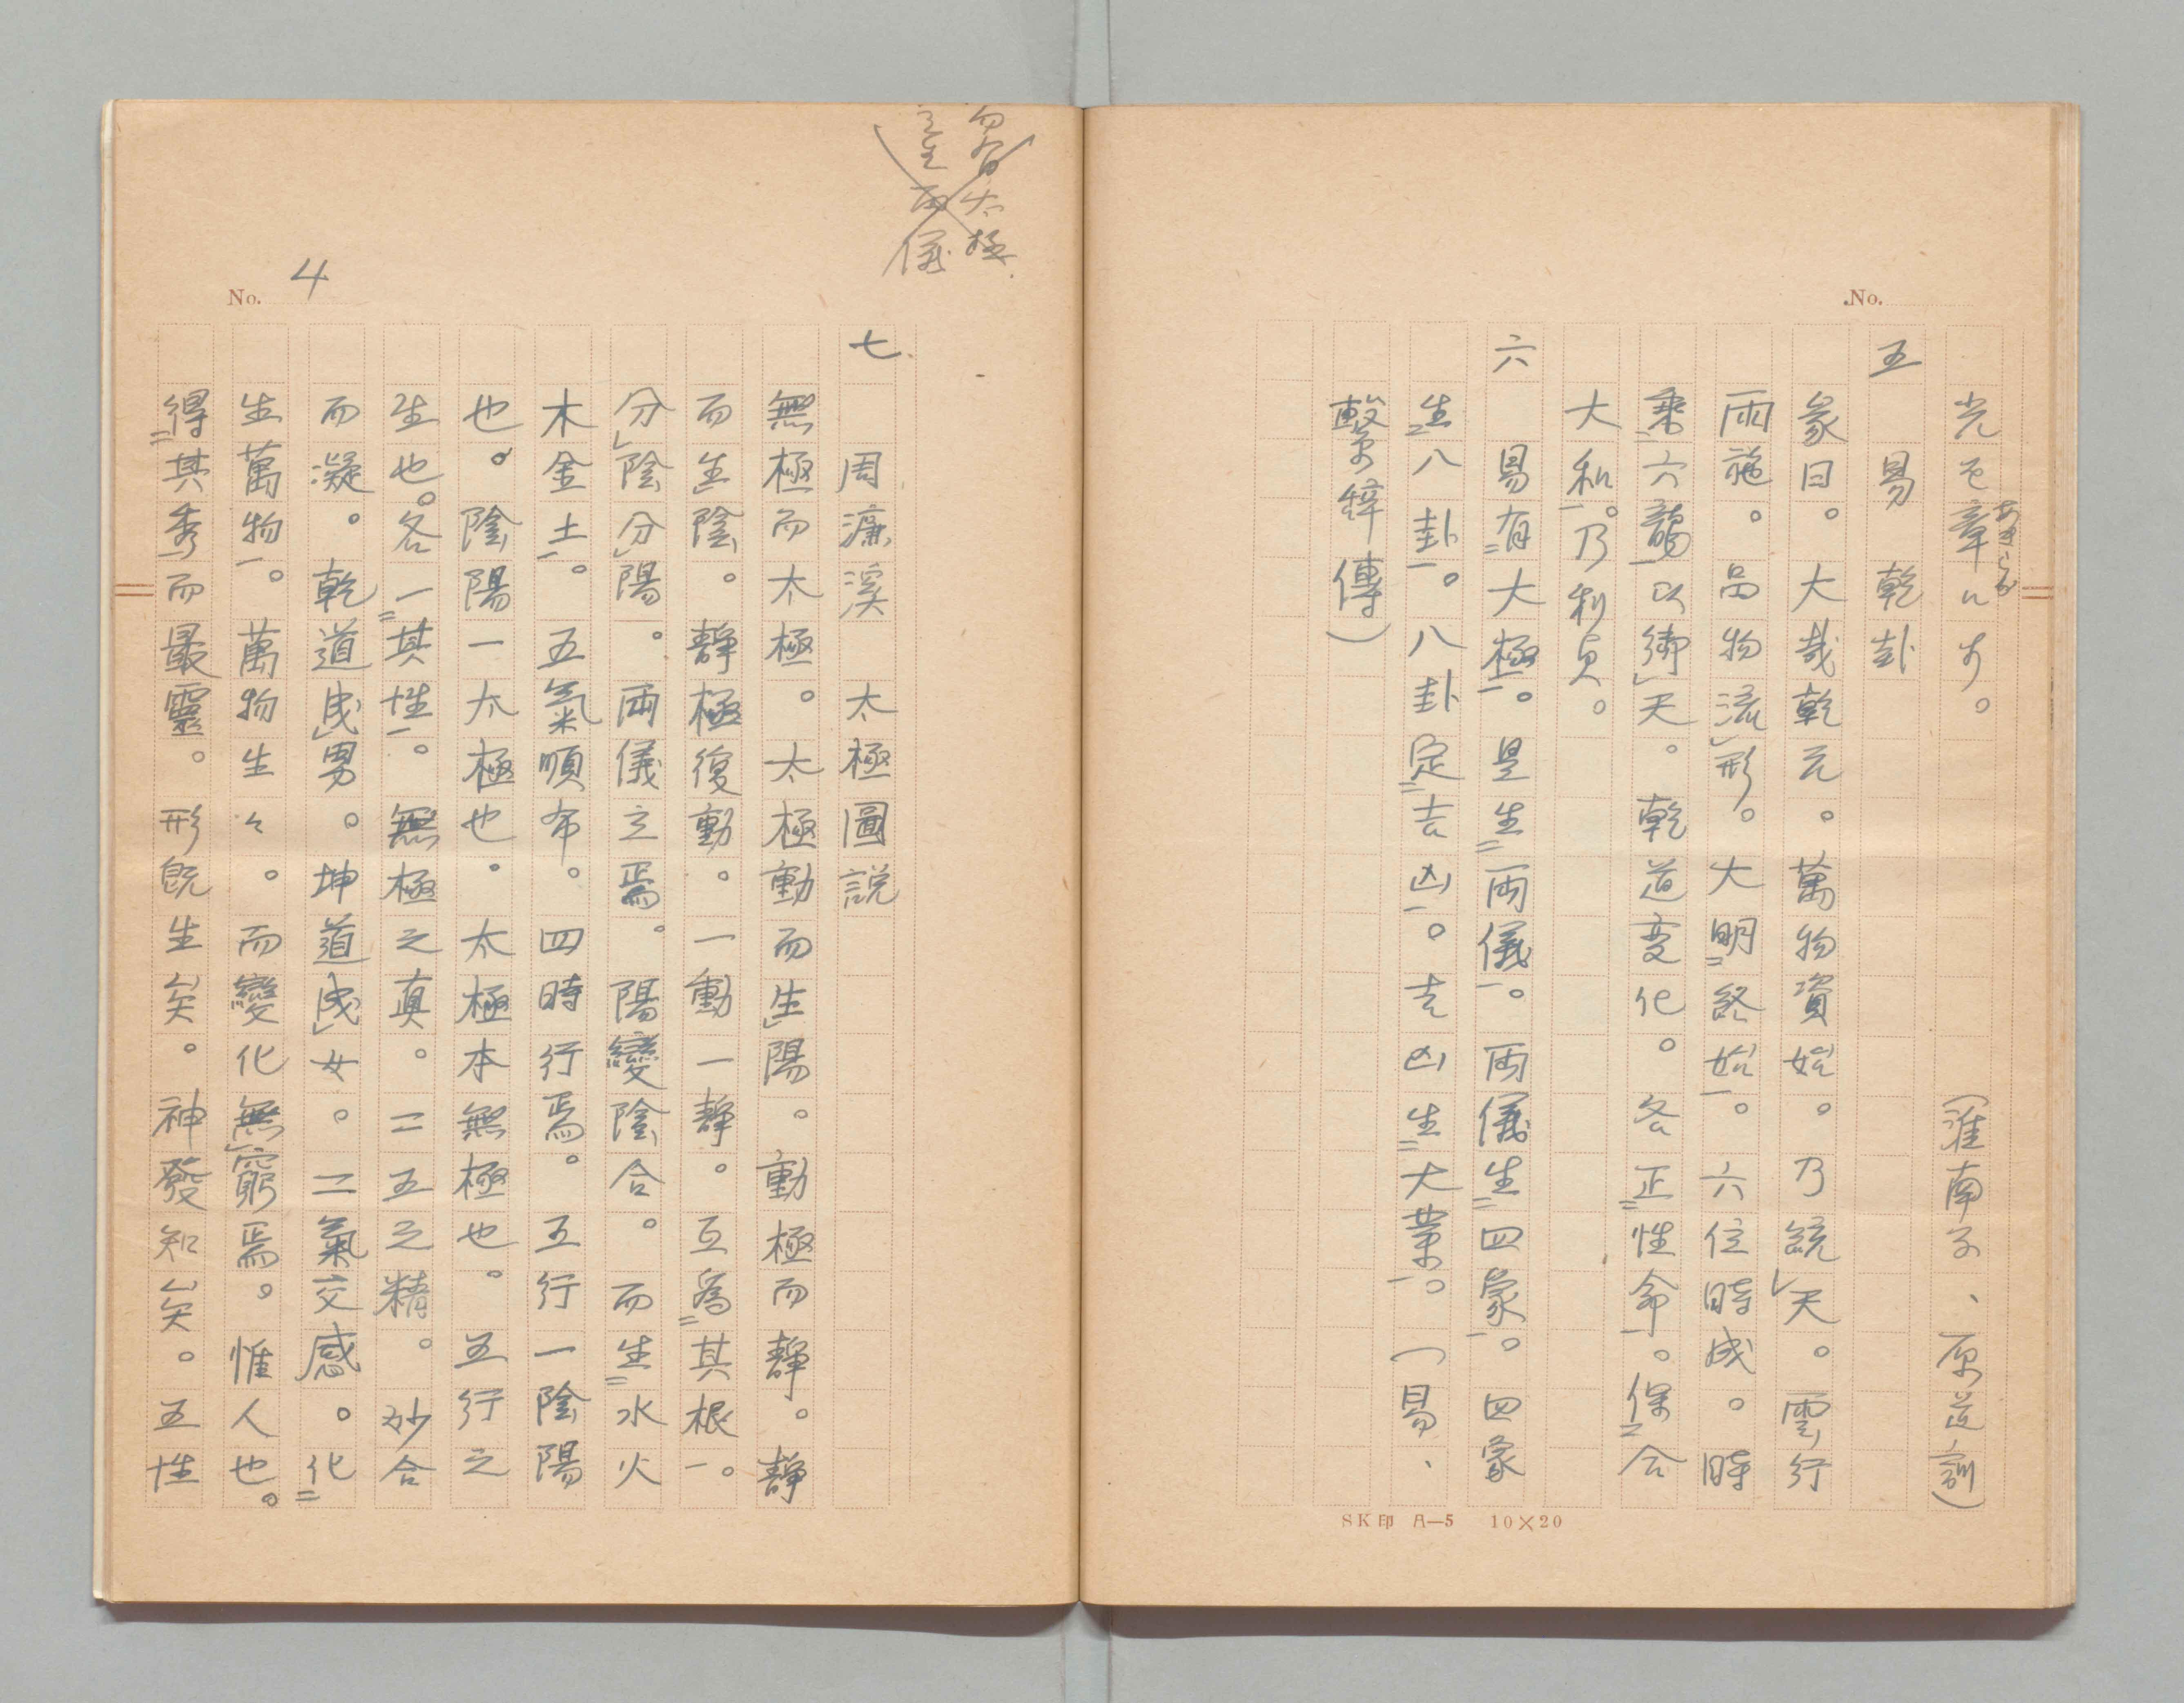 No.
光を章にす。 (淮南子、原道訓)
あきらか
五 易 乾卦
彖曰。大哉乾元。萬物資始。乃統レ天。雲行
雨施。品物流レ形。大明二終始一。六位時成。時
乘二六龍一以御レ天。乾道変化。各正二性命一。保二合
大和一。乃利貞。
六 易有二大極一。是生二兩儀一。兩儀生二四象一。四象
生二八卦一。八卦定二吉凶一。吉凶生二大業一。(易、
繫辞傳)
SK印 A—5 10×20
易有太極
是生兩儀
No. 4
七 周濂溪 太極圖説
無極而太極。太極動而生レ陽。動極而靜。靜
而生レ陰。靜極復動。一動一靜。互爲二其根一。
分レ陰分レ陽。兩儀立焉。陽變陰合。而生二水火
木金土一。五氣順布。四時行焉。五行一陰陽
也。陰陽一太極也。太極本無極也。五行之
生也。各一二其性一。無極之真。二五之精。妙合
而凝。乾道成レ男。坤道成レ女。二氣交感。化二
生萬物一。萬物生々。而變化無レ窮焉。惟人也。
得二其秀一而最靈。形既生矣。神發知矣。五性